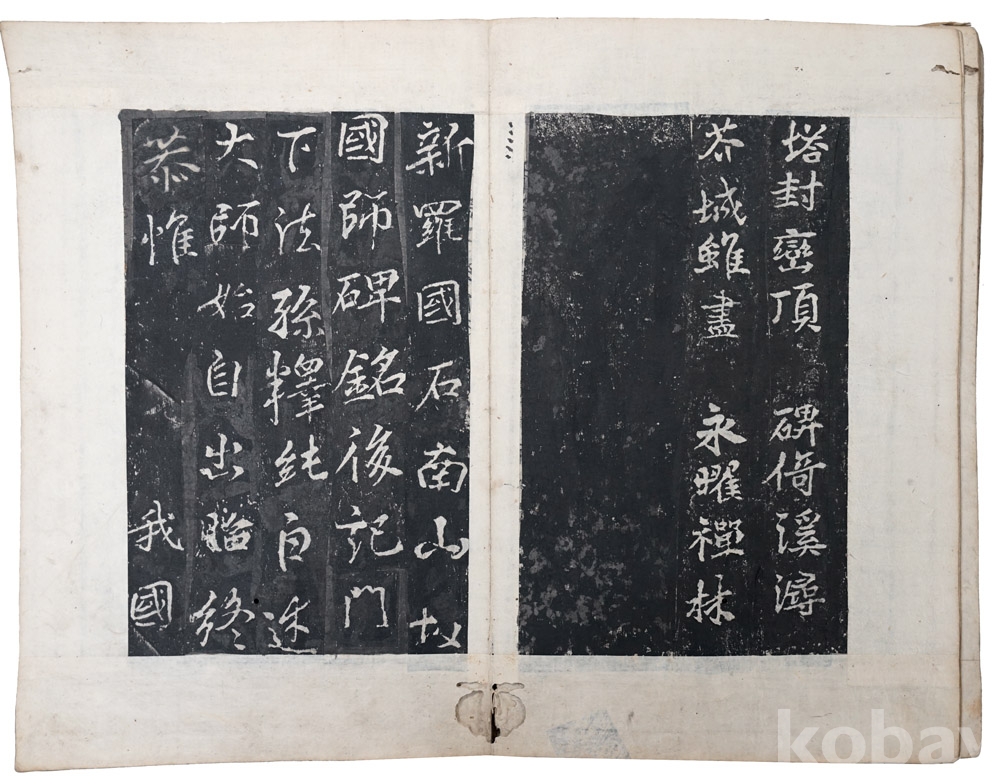 塔封巒頂 碑倚溪潯
芥城雖盡 永曜禪林
新羅國石南山故
國師碑銘後記門
下法孫釋純白述
大師始自出胎終
恭惟 我國
kobay